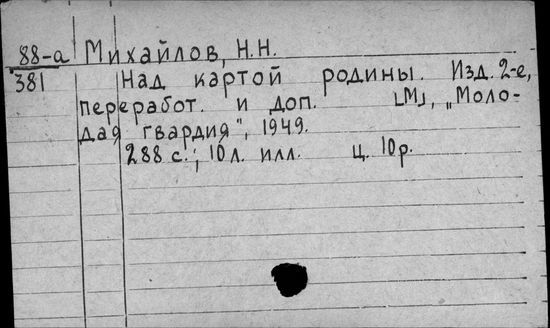 88-а Михайлов, Н.Н.
381 Над картой родины. Изд. 2-е,
переработ. и доп. [М], „Моло-
дая гвардия", 1949.
288 с.; 10 л. илл. Ц. 10 р.